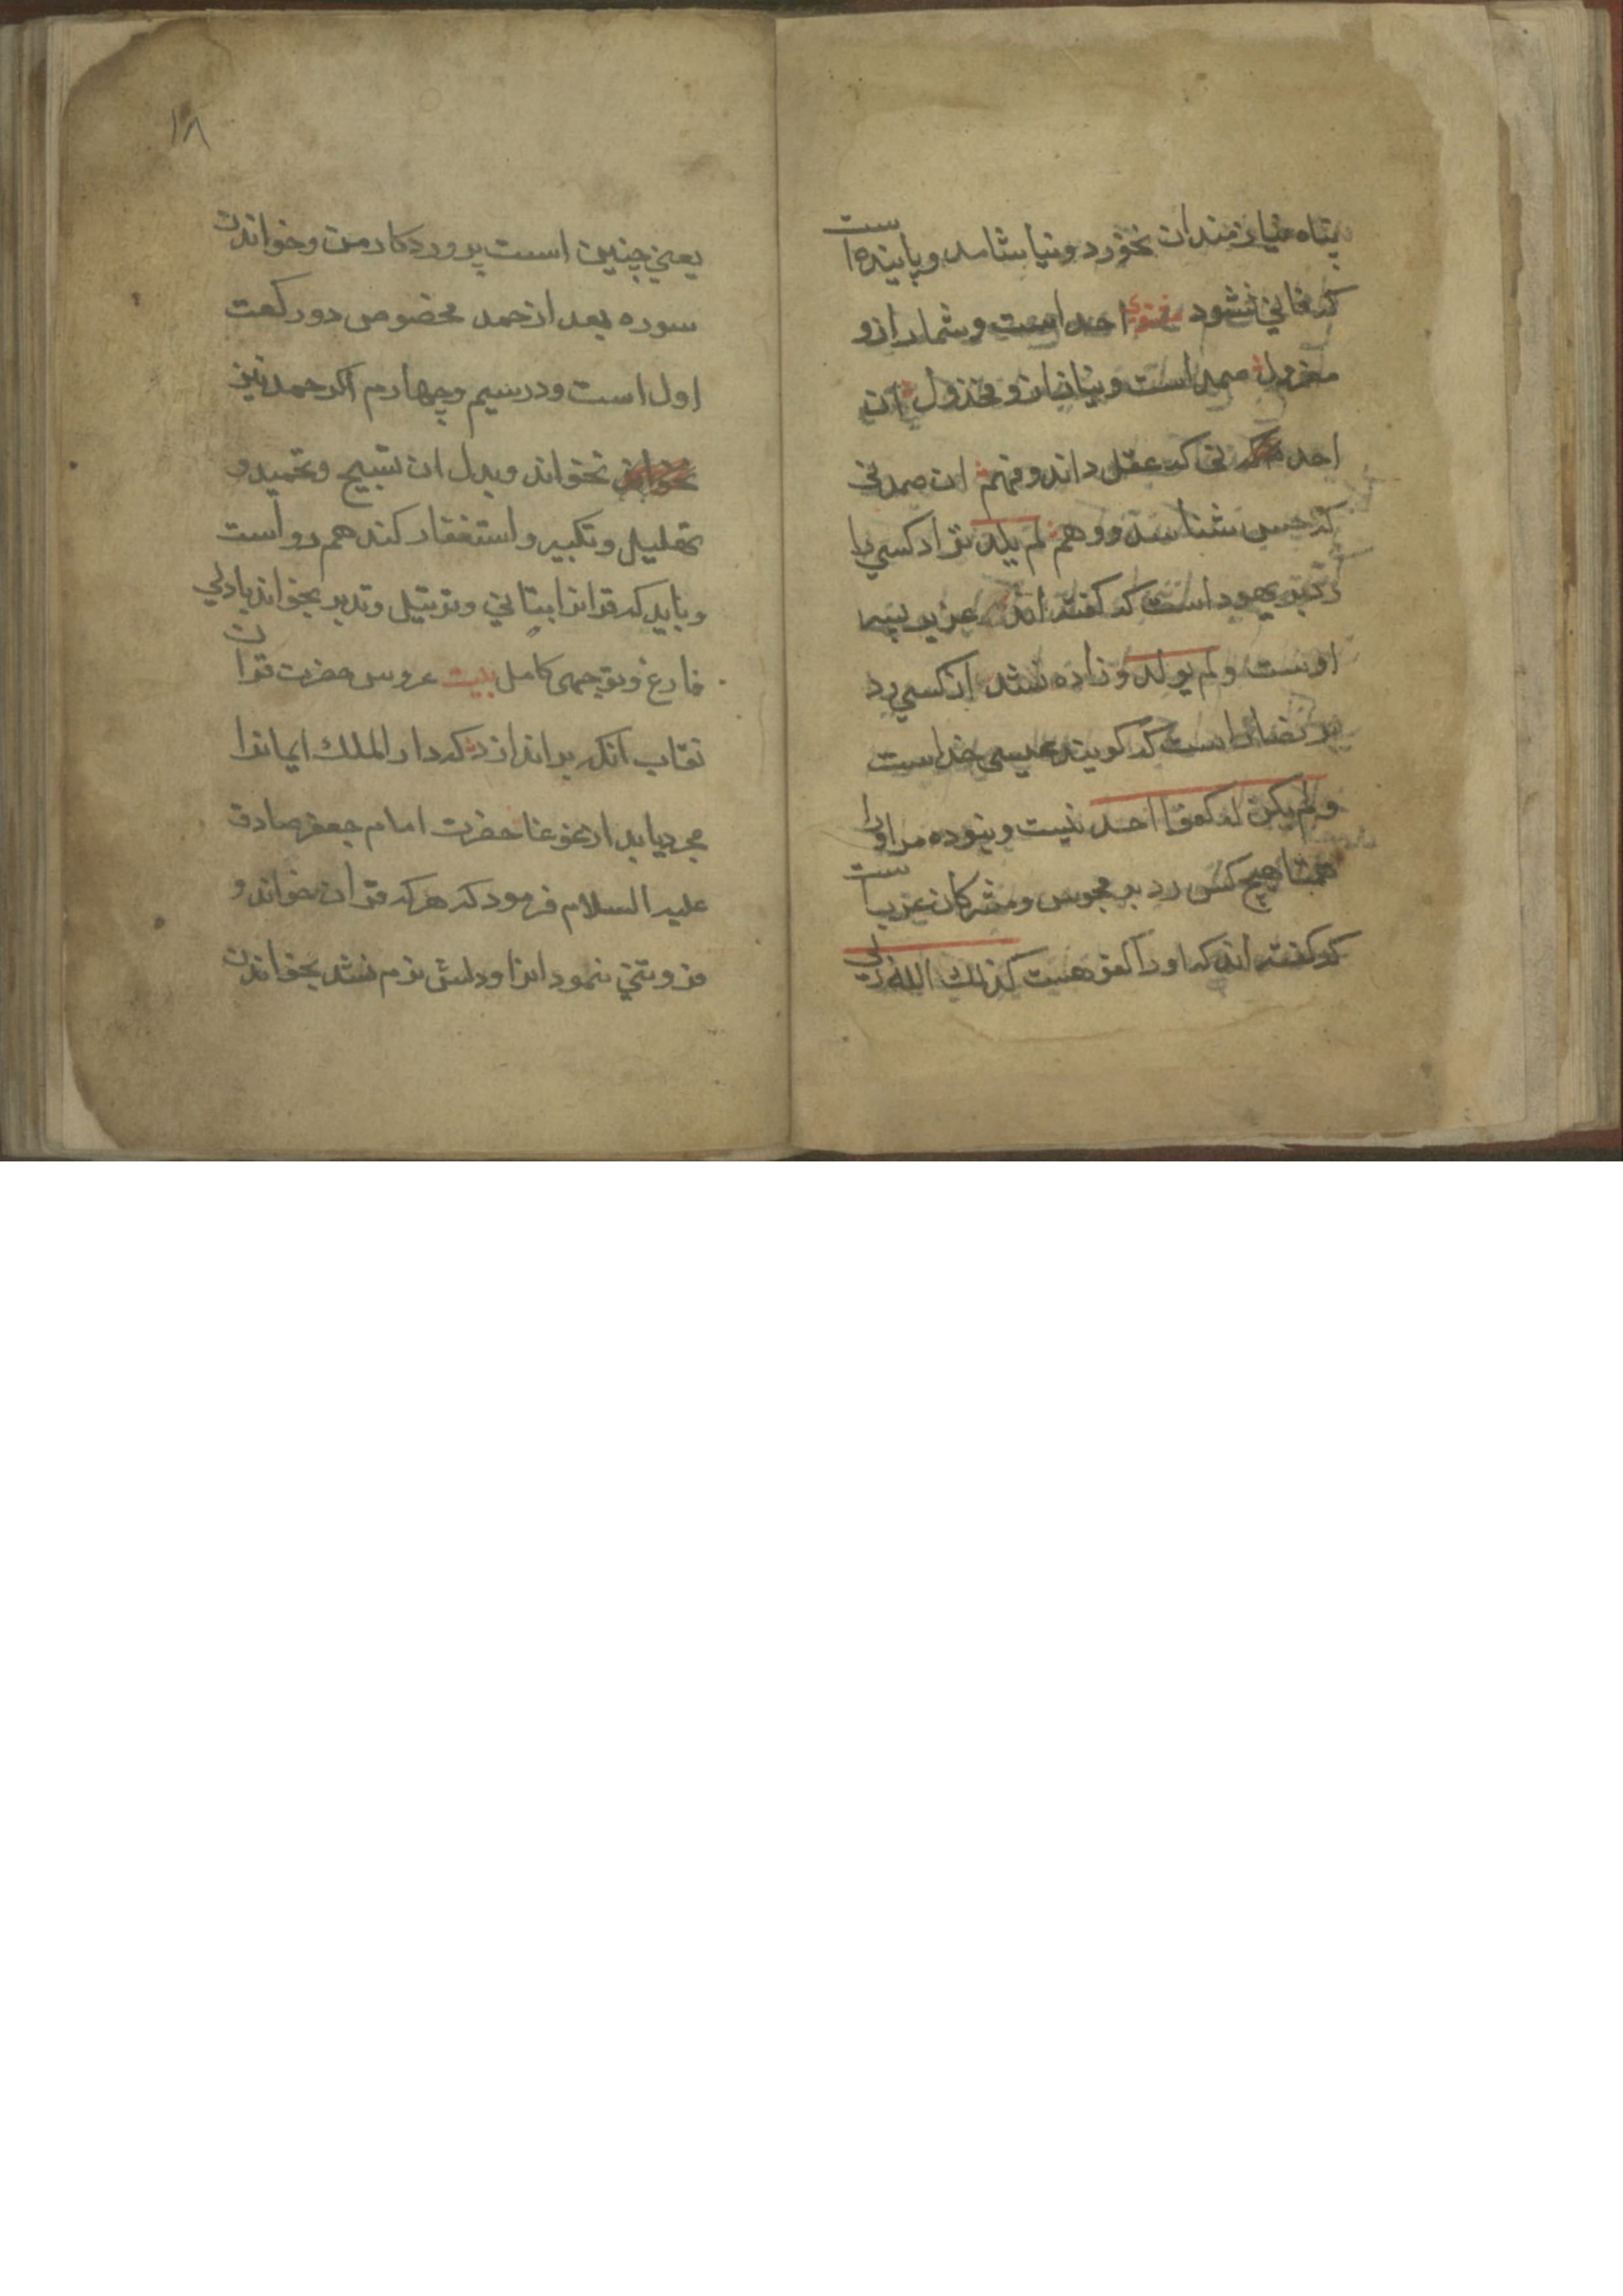 پناه نیازمندان نخورد و نیاشامد و پاینده است
که فانی نشود مثنوی احد است و شمار ازو
معزول صمد است و نیاز ازو مخذول آن
احد نی که عقل داند و فهم ان صمد نی
که حس شناسد و وهم لم یلد نزاد کسی را
رد بر یهود است که گفته اند عزیر پسر
اوست ولم یولد و زاده نشد از کسی رد
بر نصارا است که کویند عیسی خداست
ولم یکن له کفوا احد نیست و نبوده مر اورا
همتا هیچ کس رد بر مجوس و مشرکان عربست
که گفته اند که او را کفو هست کذلك الله ربی
۱۸
یعنی چنین است پروردکار من و خواندن
سوره بعد از حمد مخصوص دو رکعت
اول است و در سیم و چهارم اکر حمد نیز
نخواند و بدل ان تسبیح و تحمید و
تهلیل و تکبیر و استغفار کند هم رواست
و باید که قرانرا بتانی و ترتیل و تدبر بخواند بادلی
فارغ و توجهی کامل بیت عروس حضرت قران
نقاب آنکه براندازد که دار الملك ایمانرا
مجرد یابد از غوغا حضرت امام جعفر صادق
علیه السلام فرمود که هر که قران خواند و
فروتنی ننمود انرا و دلش نرم نشد بخواندن